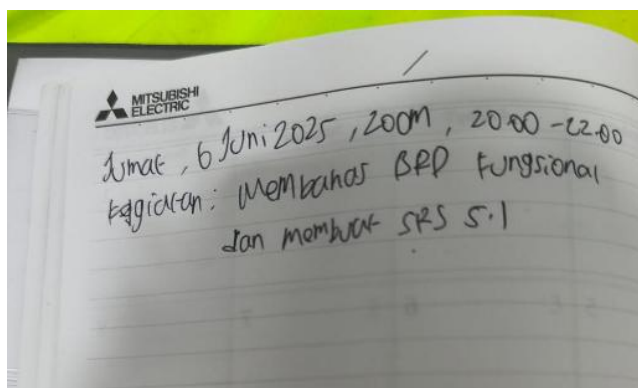 MITSUBISHI
ELECTRIC
Jumat, 6 Juni 2025, ZOOM, 20.00 - 22.00
Kegiatan: Membahas BRD Fungsional
dan membuat SRS 5.1